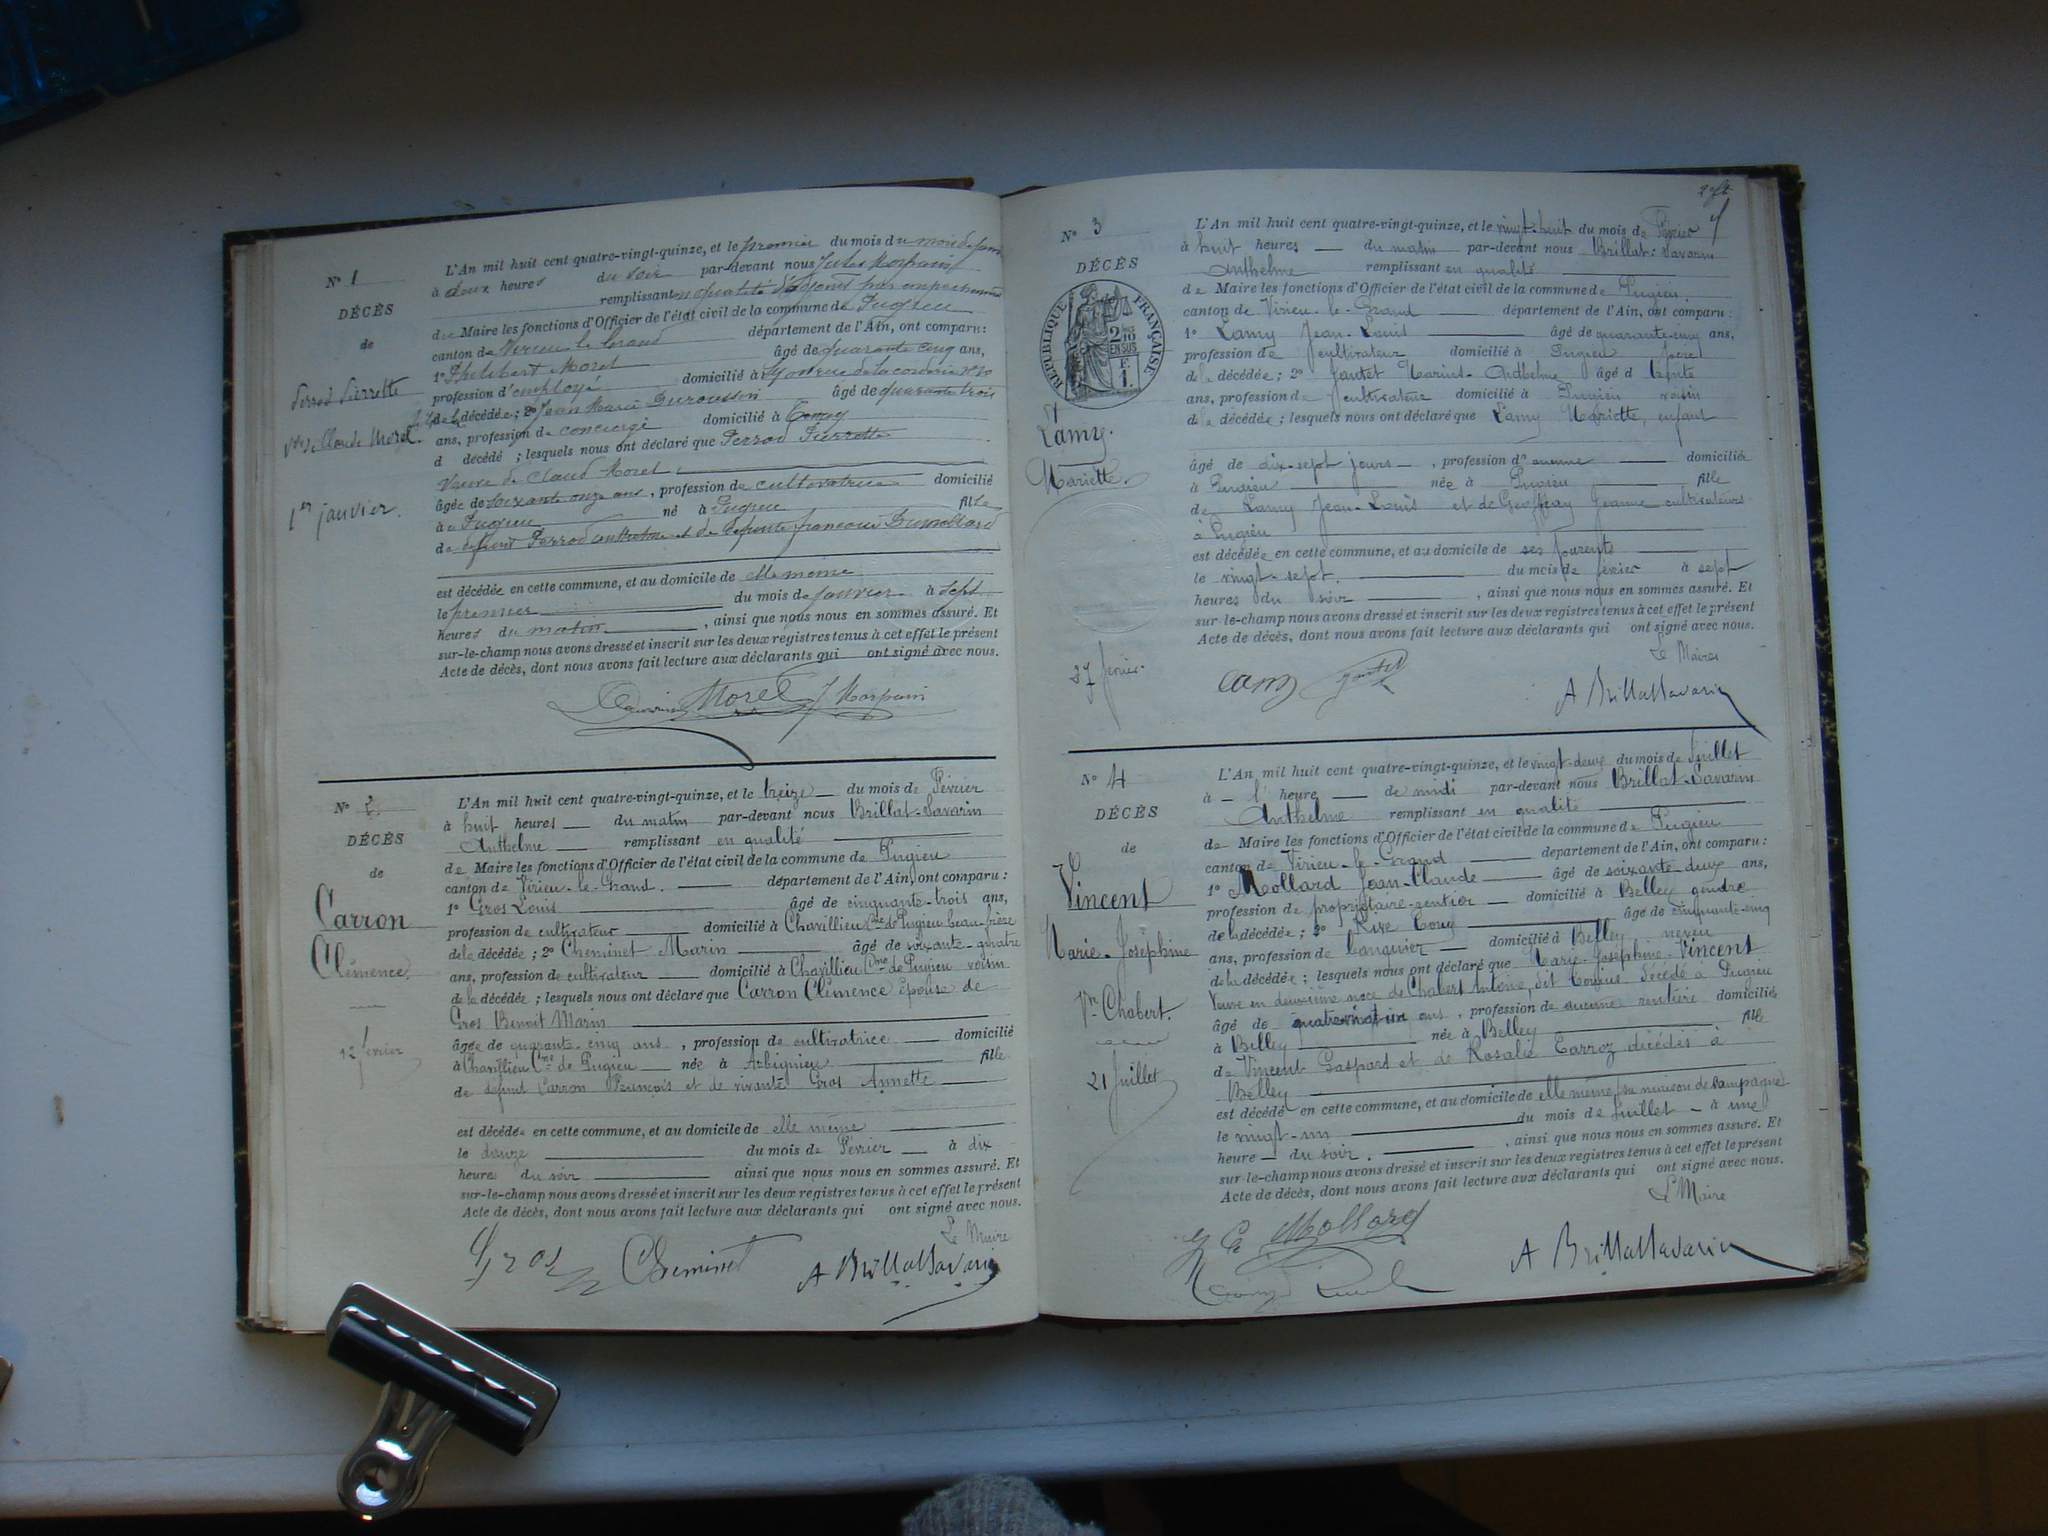 N° 1
DÉCÈS
de
Perrod Pierrette
Vve de Claude Morel.
1er janvier.
L'An mil huit cent quatre-vingt-quinze, et le premier du mois du mois de janv
à deux heures du soir par-devant nous Jules Morpain
remplissant en qualité d'adjoint par empechement
de Maire les fonctions d'Officier de l'état civil de la commune de Pugieu
canton de Virieu le Grand département de l'Ain, ont comparu :
1° Philibert Morel âgé de quarante cinq ans,
profession d'employé domicilié à Lyon rue de la
de la décédée ; 2° Jean Marie Durousson âgé de quarante trois
ans, profession de concierge domicilié à Tenay
d décédé ; lesquels nous ont déclaré que Perrod Pierrette
Veuve de Claude Morel
âgée de soixante onze ans, profession de cultivatrice domicilié
à Pugieu né à Pugieu fille
de défunt Perrod Anthelme et de défunte françoise Dumollard
est décédée en cette commune, et au domicile de elle même
le premier du mois de janvier à sept
heures du matin, ainsi que nous nous en sommes assuré. Et
sur-le-champ nous avons dressé et inscrit sur les deux registres tenus à cet effet le présent
Acte de décès, dont nous avons fait lecture aux déclarants qui ont signé avec nous.
Morel J. Morpain
N° 2
DÉCÈS
de
Carron
Clémence.
12 février
L'An mil huit cent quatre-vingt-quinze, et le treize du mois de Février
à huit heures du matin par-devant nous Brillat-Savarin
Anthelme remplissant en qualité
de Maire les fonctions d'Officier de l'état civil de la commune de Pugieu
canton de Virieu-le-Grand. département de l'Ain, ont comparu :
1° Gros Louis âgé de cinquante-trois ans,
profession de cultivateur domicilié à Chavillieu Cne de Pugieu beau-frère
de la décédée ; 2° Cheminet Marin âgé de soixante-quatre
ans, profession de cultivateur domicilié à Chavillieu Cne de Pugieu voisin
de la décédée ; lesquels nous ont déclaré que Carron Clémence épouse de
Gros Benoit Marin
âgée de quarante-cinq ans, profession de cultivatrice domicilié
à Chavillieu Cne de Pugieu née à Arbignieu fille
de défunt Carron François et de vivante Gros Annette
est décédée en cette commune, et au domicile de elle même
le douze du mois de Février à dix
heure du soir ainsi que nous nous en sommes assuré. Et
sur-le-champ nous avons dressé et inscrit sur les deux registres tenus à cet effet le présent
Acte de décès, dont nous avons fait lecture aux déclarants qui ont signé avec nous.
Le Maire
Gros Cheminet A Brillat Savarin
N° 3
DÉCÈS
RÉPUBLIQUE FRANÇAISE
2/10 EN SUS
E
1.
Lamy.
Mariette.
27 février.
L'An mil huit cent quatre-vingt-quinze, et le vingt-huit du mois de Février
à huit heures du matin par-devant nous Brillat-Savarin
Anthelme remplissant en qualité
de Maire les fonctions d'Officier de l'état civil de la commune de Pugieu.
canton de Virieu-le-Grand département de l'Ain, ont comparu :
1° Lamy Jean-Louis âgé de quarante-cinq ans,
profession de cultivateur domicilié à Pugieu père
de la décédée ; 2° Jantet Marius-Anthelme âgé d trente
ans, profession de cultivateur domicilié à Pugieu voisin
de la décédée ; lesquels nous ont déclaré que Lamy Mariette, enfant
âgé de dix-sept jours, profession d'aucune domiciliée
à Pugieu née à Pugieu fille
de Lamy Jean-Louis et de Geoffray Jeanne cultivateurs
à Pugieu
est décédée en cette commune, et au domicile de ses parents
le vingt-sept. du mois de février à sept
heures du soir, ainsi que nous nous en sommes assuré. Et
sur-le-champ nous avons dressé et inscrit sur les deux registres tenus à cet effet le présent
Acte de décès, dont nous avons fait lecture aux déclarants qui ont signé avec nous.
Le Maire
Lamy Jantet A Brillat Savarin
N° 4
DÉCÈS
de
Vincent
Marie-Joséphine
Vve Chabert.
21 juillet
L'An mil huit cent quatre-vingt-quinze, et le vingt-deux du mois de Juillet
à l' heure de midi par-devant nous Brillat-Savarin
Anthelme remplissant en qualité
de Maire les fonctions d'Officier de l'état civil de la commune de Pugieu
canton de Virieu-le-Grand département de l'Ain, ont comparu :
1° Mollard Jean-Claude âgé de soixante-deux ans,
profession de propriétaire-rentier domicilié à Belley gendre
de la décédée ; 2° Rive Tony âgé de cinquante-cinq
ans, profession de banquier domicilié à Belley neveu
de la décédée ; lesquels nous ont déclaré que Marie-Joséphine Vincent
Veuve en deuxième noce de Chabert Antoine, dit décédé à Pugieu
âgé de quatre-vingt un ans, profession de aucune rentière domiciliée
à Belley née à Belley fille
de Vincent Gaspard et de Rosalie Carroz décédés à
Belley
est décédé en cette commune, et au domicile de elle même, sa maison de campagne
le vingt-un du mois de Juillet à une
heure du soir., ainsi que nous nous en sommes assuré. Et
sur-le-champ nous avons dressé et inscrit sur les deux registres tenus à cet effet le présent
Acte de décès, dont nous avons fait lecture aux déclarants qui ont signé avec nous.
Le Maire
Mollard
A Brillat Savarin